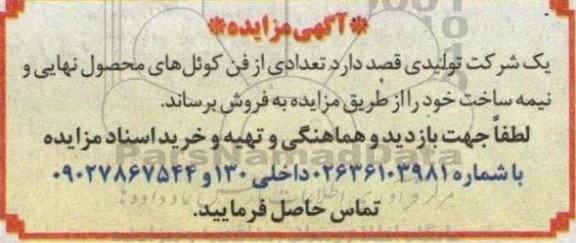 آگهی مزایده
یک شرکت تولیدی قصد دارد تعدادی از فن کوئل های محصول نهایی و
نیمه ساخت خود را از طریق مزایده به فروش برساند.
لطفاً جهت بازدید و هماهنگی و تهیه و خرید اسناد مزایده
با شماره ۰۲۶۳۶۱۰۳۹۸۱ داخلی ۱۳۰ و ۰۹۰۲۷۸۶۷۵۴۴
تماس حاصل فرمایید.
ParsNamadData